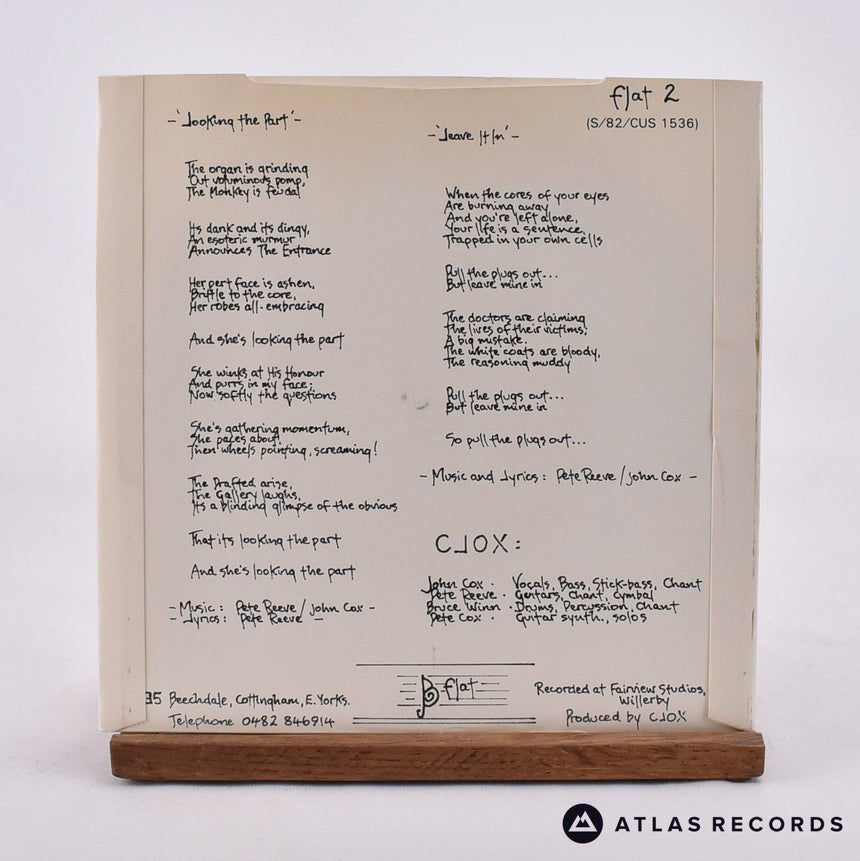 flat 2
(S/82/CUS 1536)
-'Looking the Part'-
The organ is grinding
Out voluminous pomp,
The Monkey is feudal
Its dank and its dingy,
An esoteric murmur
Announces The Entrance
Her pert face is ashen,
Brittle to the core,
Her robes all-embracing
And she's looking the part
She winks at His Honour
And purrs in my face;
Now softly the questions
She's gathering momentum,
She paces about,
Then wheels pointing, screaming!
The Drafted arise,
The Gallery laughs,
Its a blinding glimpse of the obvious
That its looking the part
And she's looking the part
- Music: Pete Reeve / John Cox -
- Lyrics: Pete Reeve -
-'Leave It In'-
When the cores of your eyes
Are burning away
And you're left alone,
Your life is a sentence,
Trapped in your own cells
Pull the plugs out...
But leave mine in
The doctors are claiming
The lives of their victims;
A big mistake.
The white coats are bloody,
The reasoning muddy
Pull the plugs out...
But leave mine in
So pull the plugs out...
- Music and Lyrics: Pete Reeve / John Cox -
CLOX:
John Cox · Vocals, Bass, Stick-bass, Chant
Pete Reeve · Guitars, Chant, Cymbal
Bruce Winn · Drums, Percussion, Chant
Pete Cox · Guitar synth., solos
35 Beechdale, Cottingham, E. Yorks.
Telephone 0482 846914
flat
Recorded at Fairview Studios,
Willerby
Produced by CLOX
ATLAS RECORDS